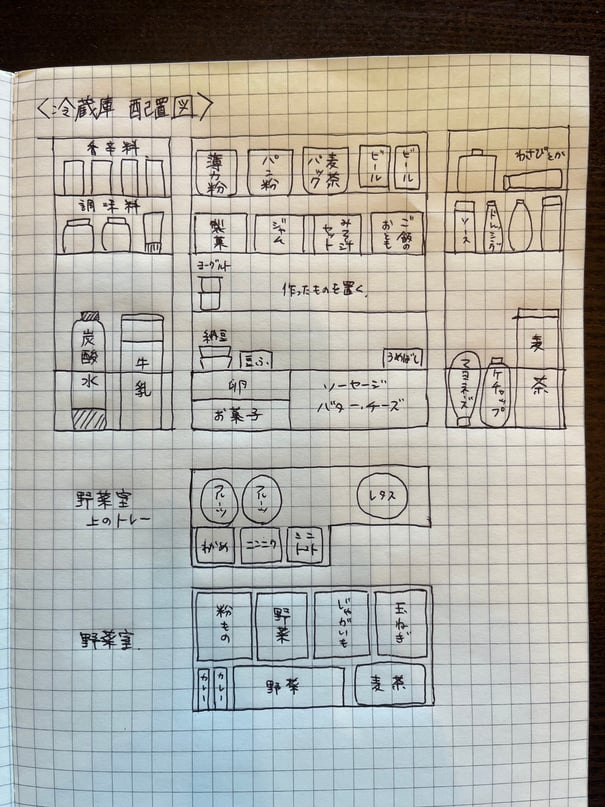 <冷蔵庫 配置図>
香辛料
調味料
炭酸水
牛乳
薄力粉
パン粉
麦茶パック
ビール
ビール
製菓
ジャム
みそ汁セット
ご飯のおとも
ヨーグルト
作ったものを置く。
納豆
豆ふ
うめぼし
卵
お菓子
ソーセージ
バター・チーズ
わさびとか
ソース
ドレッシング
マヨネーズ
ケチャップ
麦茶
野菜室
上のトレー
フルーツ
フルーツ
レタス
わかめ
ニンニク
ミニトマト
野菜室.
粉もの
野菜
じゃがいも
玉ねぎ
カレー
カレー
野菜
麦茶